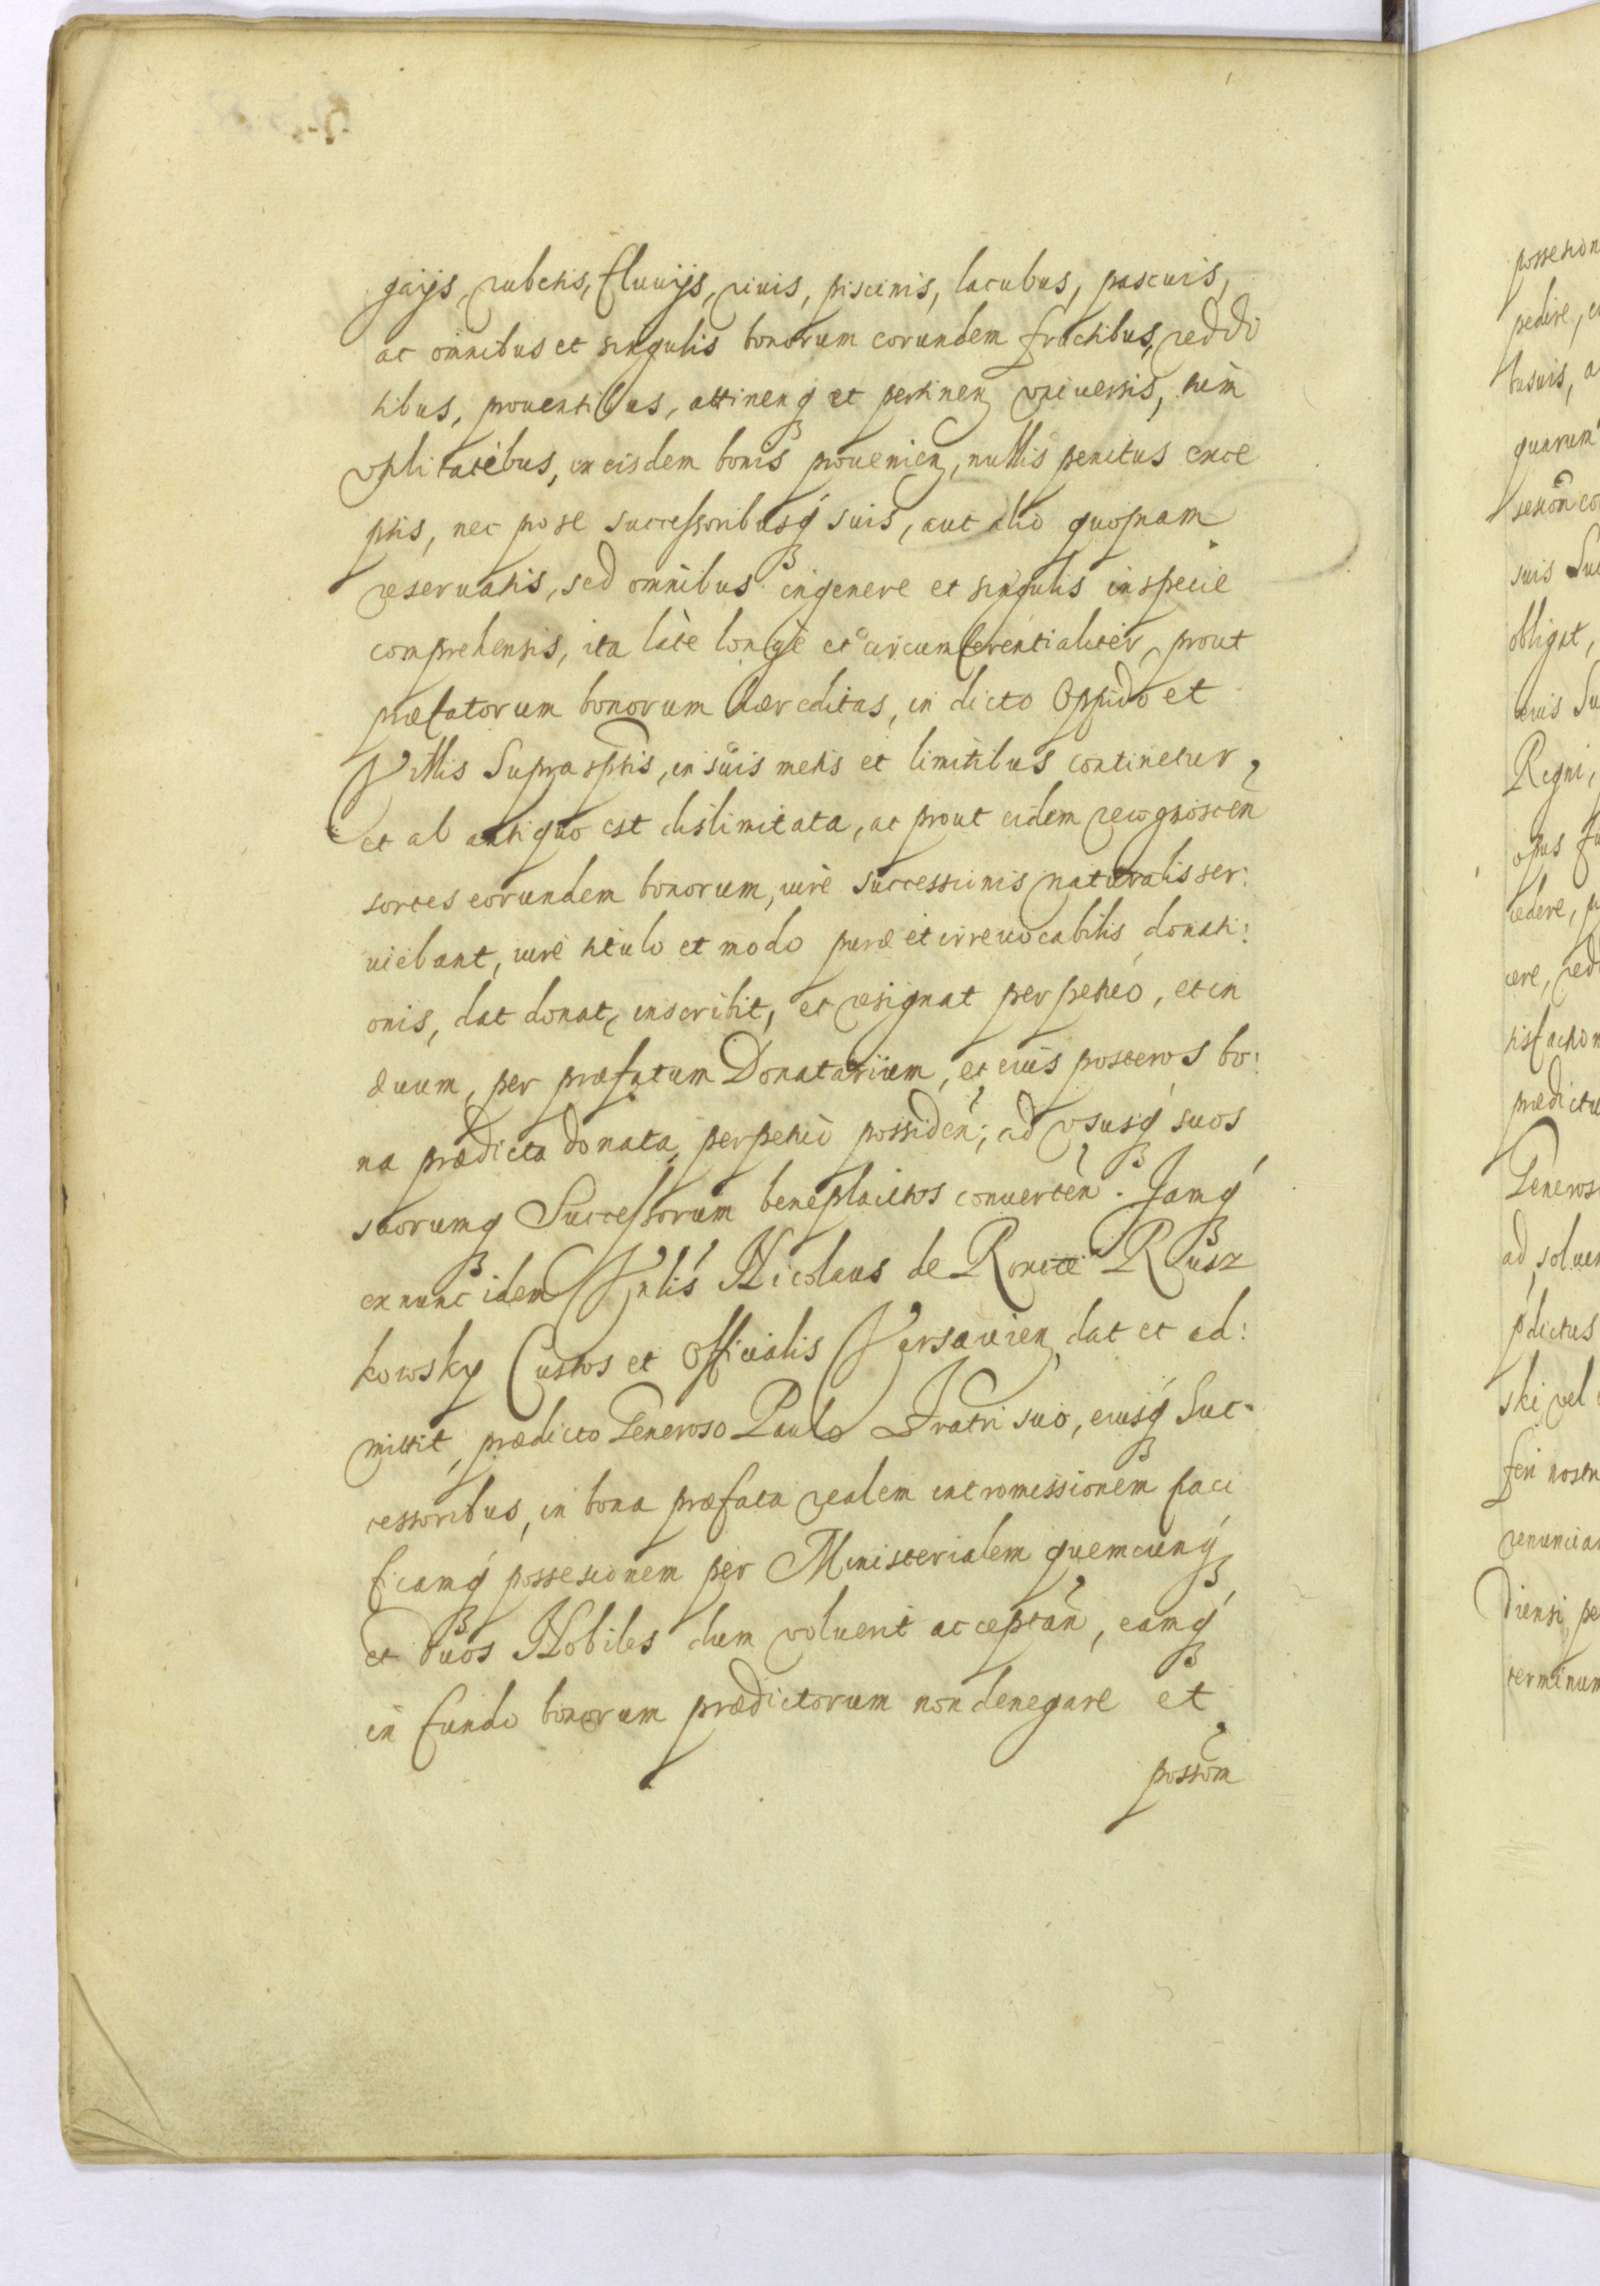 gaijs, rubetis, fluuijs, riuis, piscinis, lacubus, pascuis,
ac omnibus et singulis bonorum eorundem fructibus, reddi
tibus, prouentibus, attinen̄ q et pertinen̄ vniuersis, cum
vtilitatibus, in eisdem bonis prouenien̄, nullis penitus exce
ptis, nec pro se successoribusq suis, aut alio quopiam
reseruatis, sed omnibus in genere et singulis in specie
comprehensis, ita late longè et circumferentialiter, prout
præfatorum bonorum hæreditas, in dicto Oppido et
Villis suprasptis, in suis metis et limitibus continetur,
et ab antiquo est dislimitata, ac prout eidem recognoscen̄
sortes eorundem bonorum, iure successionis naturalis ser:
uiebant, iure titulo et modo puræ et irreuocabilis donati:
onis, dat donat, inscribit, et resignat perpetuò, et in
æuum, per præfatum Donatarium, et eius posteros bo:
na prædicta donata, perpetuò possiden̄; ad vsusq suos
suorumq Successorum beneplacitos conuerten̄. Jamq
ex nunc idem Vnlis Nicolaus de Roncice Rusz
kowsky Custos et Officialis Varsauien̄, dat et ad:
mittit, prædicto Generoso Paulo Fratri suo, eiusq Suc-
cessoribus, in bona præfata realem intromissionem paci
ficamq possesionem per Ministerialem quemcunq
et duos Nobiles dum voluerit acceptan̄, eamq
in fundo bonorum prædictorum non denegare et
possom
possesion
pedire,
busuis,
quarum
suis Suc
obligat,
eius Su
Regni,
opus fu
cedere,
cere, red
tisfaction
prædictu
Generos
ad solue
pdictus
ski vel
feri nostr
renuncian
diensi, pe
terminum